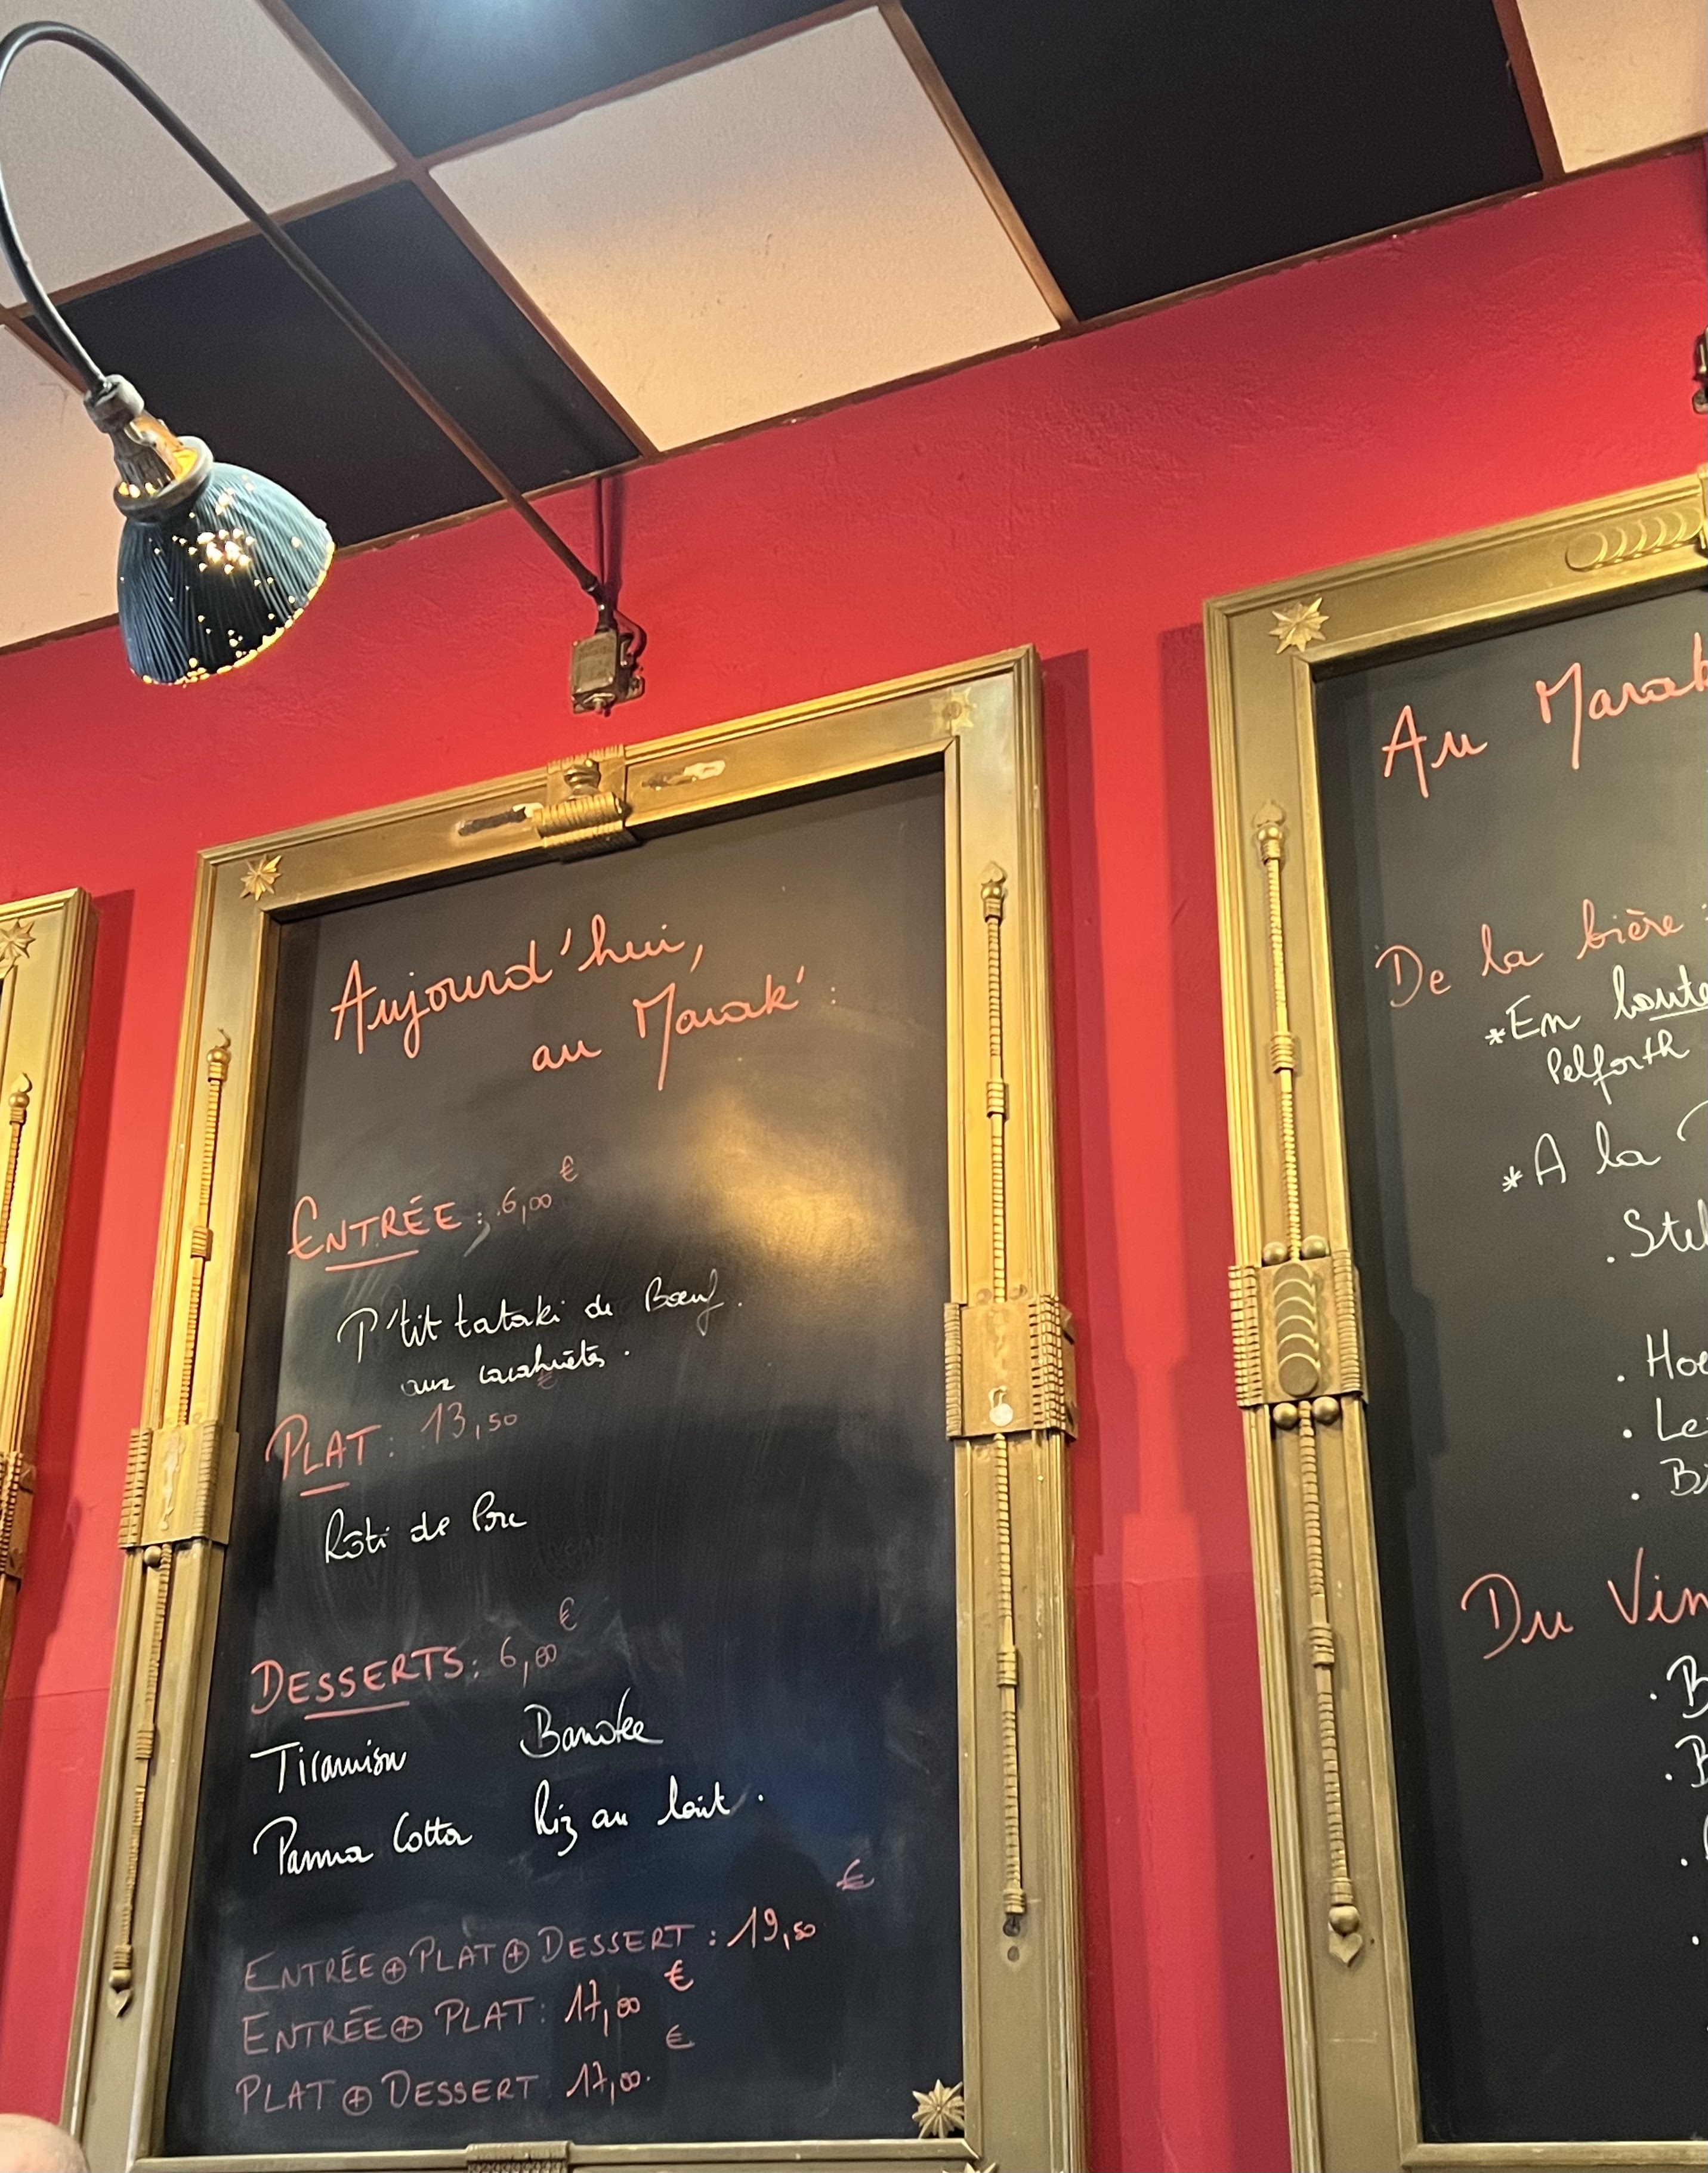 Aujourd'hui,
au Marak' :
ENTRÉE : 6,00 €
P'tit tataki de Bœuf.
aux cacahuètes.
PLAT : 13,50 €
Rôti de Porc
DESSERTS : 6,00 €
Tiramisu Banofee
Panna Cotta Riz au lait.
ENTRÉE ⊕ PLAT ⊕ DESSERT : 19,50 €
ENTRÉE ⊕ PLAT : 17,00 €
PLAT ⊕ DESSERT 17,00. €
Au Marak
De la bière :
*En boute
Pelforth
*A la
. Stel
. Hoe
. Le
. B
Du Vin
. B
. B